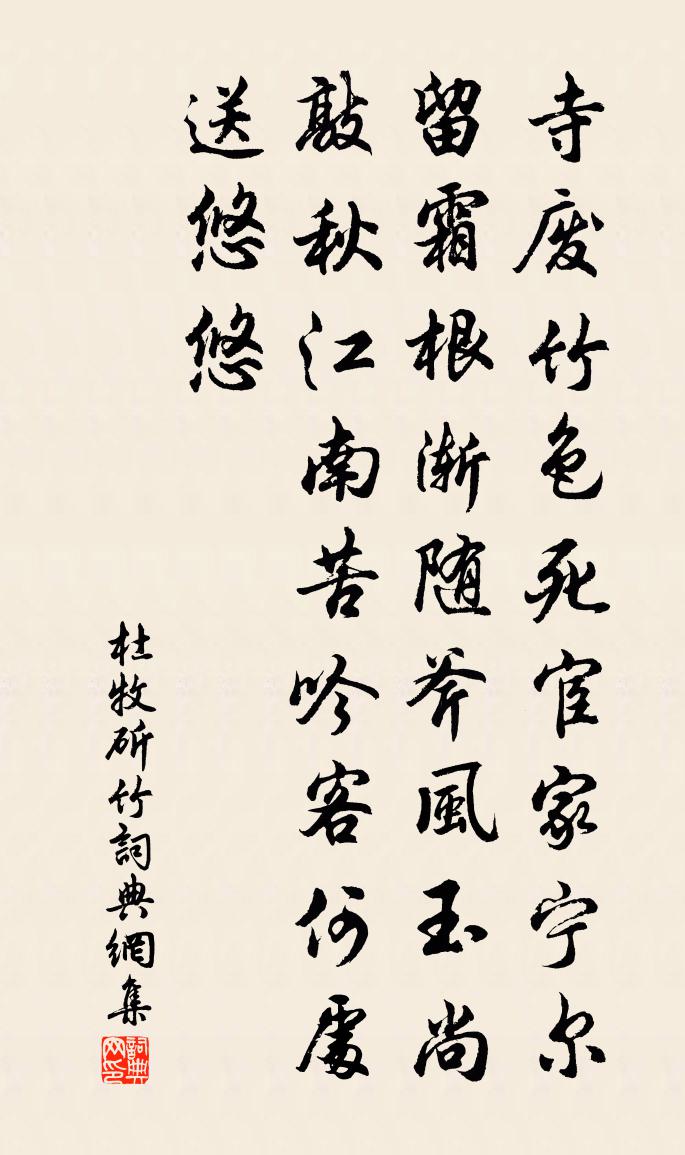 寺废竹色死宦家宁尔
留霜根渐随斧風玉尚
敲秋江南苦吟客何處
送悠悠
杜牧斫竹詞典網集
詞典网印